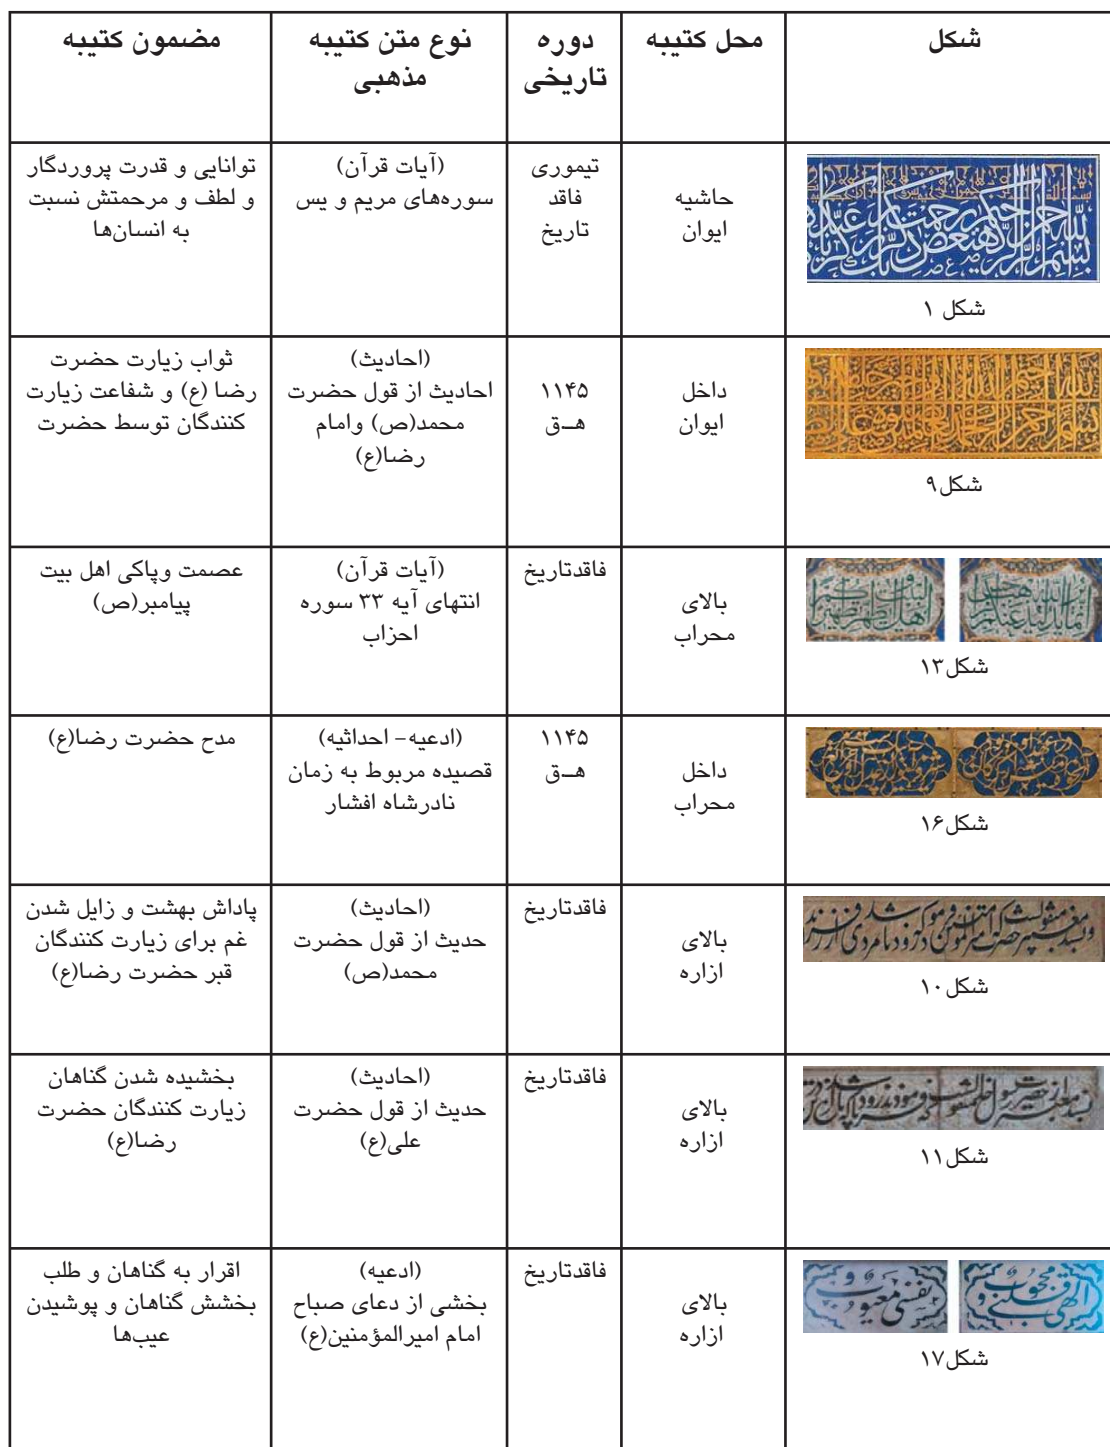 شکل
محل کتیبه
دوره
تاریخی
نوع متن کتیبه
مذهبی
مضمون کتیبه
شکل ۱
حاشیه
ایوان
تیموری
فاقد
تاریخ
(آیات قرآن)
سوره‌های مریم و یس
توانایی و قدرت پروردگار
و لطف و مرحمتش نسبت
به انسان‌ها
شکل۹
داخل
ایوان
۱۱۴۵
هـ‌ق
(احادیث)
احادیث از قول حضرت
محمد(ص) وامام
رضا(ع)
ثواب زیارت حضرت
رضا (ع) و شفاعت زیارت
کنندگان توسط حضرت
شکل۱۳
بالای
محراب
فاقدتاریخ
(آیات قرآن)
انتهای آیه ۳۳ سوره
احزاب
عصمت وپاکی اهل بیت
پیامبر(ص)
شکل۱۶
داخل
محراب
۱۱۴۵
هـ‌ق
(ادعیه- احداثیه)
قصیده مربوط به زمان
نادرشاه افشار
مدح حضرت رضا(ع)
شکل۱۰
بالای
ازاره
فاقدتاریخ
(احادیث)
حدیث از قول حضرت
محمد(ص)
پاداش بهشت و زایل شدن
غم برای زیارت کنندگان
قبر حضرت رضا(ع)
شکل۱۱
بالای
ازاره
فاقدتاریخ
(احادیث)
حدیث از قول حضرت
علی(ع)
بخشیده شدن گناهان
زیارت کنندگان حضرت
رضا(ع)
الهی قلبی محجوب و
نفسی معیوب و
شکل۱۷
بالای
ازاره
فاقدتاریخ
(ادعیه)
بخشی از دعای صباح
امام امیرالمؤمنین(ع)
اقرار به گناهان و طلب
بخشش گناهان و پوشیدن
عیب‌ها